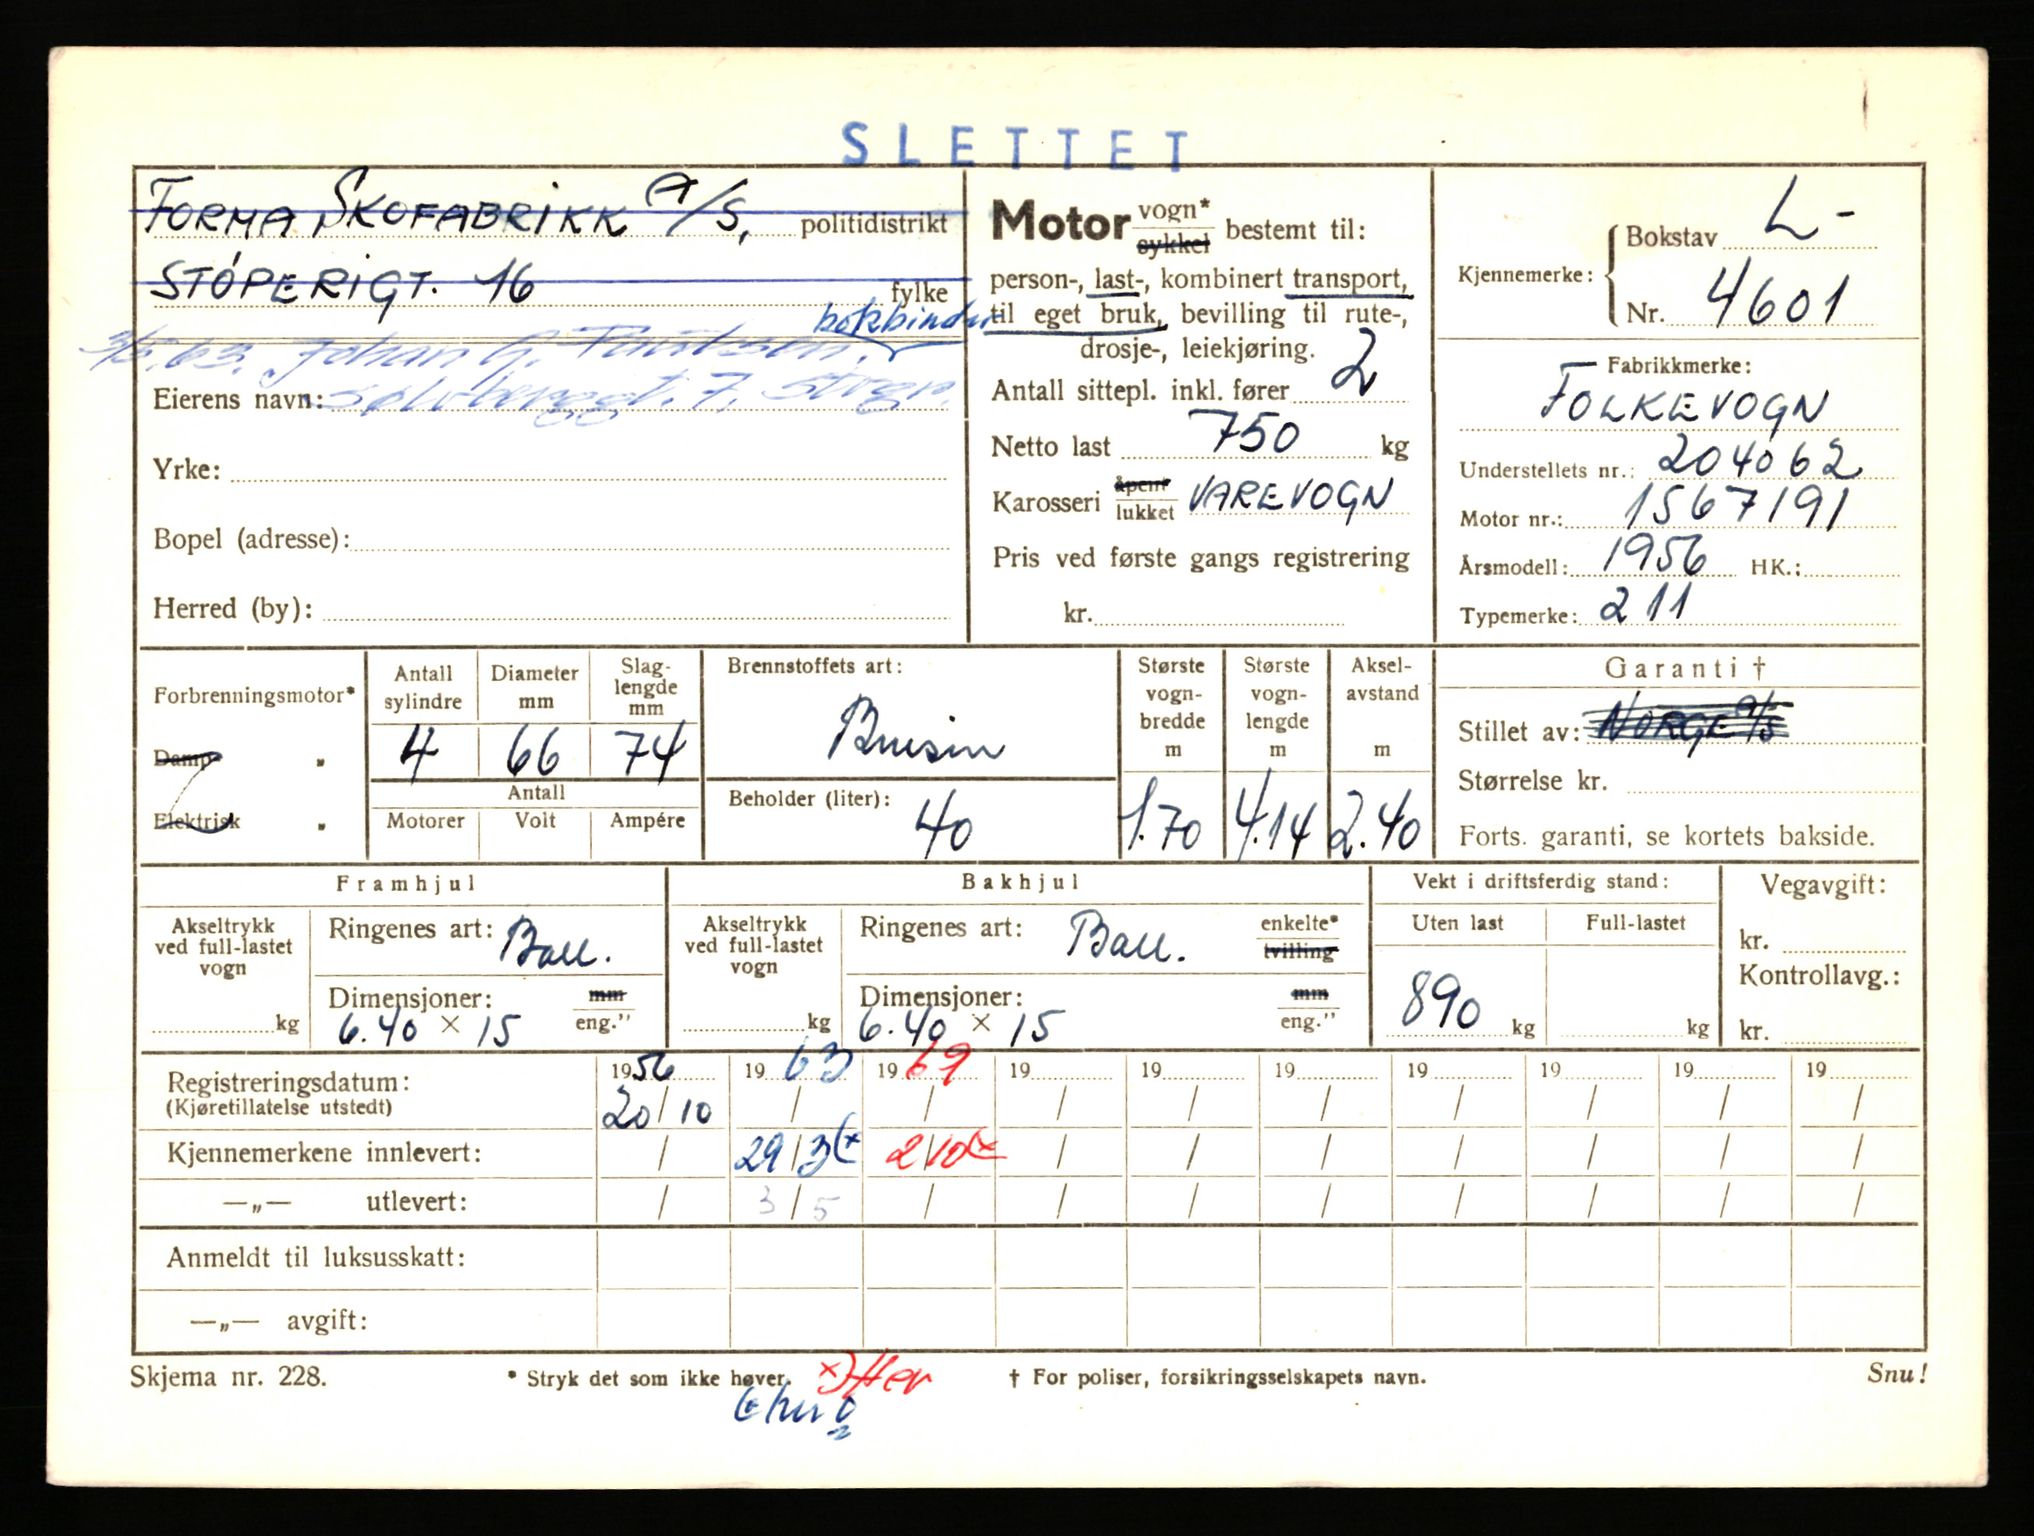 SLETTET
FORMA SKOFABRIKK A/S, politidistrikt
STÓPERIGT. 16 fylke
bokbinder
3/5.63. Johan G. Paulsen.
Eierens navn: Sølvberggt. 7. Stvgr.
Yrke:
Bopel (adresse):
Herred (by):
Motor vogn* sykkel bestemt til:
person-, last-, kombinert transport,
til eget bruk, bevilling til rute-,
drosje-, leiekjøring.
Antall sittepl. inkl. fører 2
Netto last 750 kg
Karosseri åpent lukket VAREVOGN
Pris ved første gangs registrering
kr.
Kjennemerke: Bokstav L-
Nr. 4601
Fabrikkmerke:
FOLKEVOGN
Understellets nr.: 204062
Motor nr.: 1567191
Årsmodell: 1956 HK.:
Typemerke: 211
Forbrenningsmotor*
Damp "
Elektrisk "
Antall sylindre Diameter mm Slag-lengde mm
4 66 74
Antall
Motorer Volt Ampére
Brennstoffets art:
Bensin
Beholder (liter): 40
Største vogn-bredde m Største vogn-lengde m Aksel-avstand m
1.70 4.14 2.40
Garanti †
Stillet av: NORGE A/S
Størrelse kr.
Forts. garanti, se kortets bakside.
Framhjul
Akseltrykk ved full-lastet vogn
kg
Ringenes art: Ball.
Dimensjoner: mm
6.40 × 15 eng."
Bakhjul
Akseltrykk ved full-lastet vogn
kg
Ringenes art: Ball. enkelte* tvilling
Dimensjoner: mm
6.40 × 15 eng."
Vekt i driftsferdig stand:
Uten last Full-lastet
890 kg kg
Vegavgift:
kr.
Kontrollavg.:
kr.
Registreringsdatum: 1956 1963 1969 19 19 19 19 19 19 19
(Kjøretillatelse utstedt) 20/10 / / / / / / / / /
Kjennemerkene innlevert: / 29/3(* 2/10(* / / / / / / /
—„— utlevert: / 3/5 / / / / / / / /
Anmeldt til luksusskatt:
—„— avgift:
Skjema nr. 228. * Stryk det som ikke høver. † For poliser, forsikringsselskapets navn. Snu!